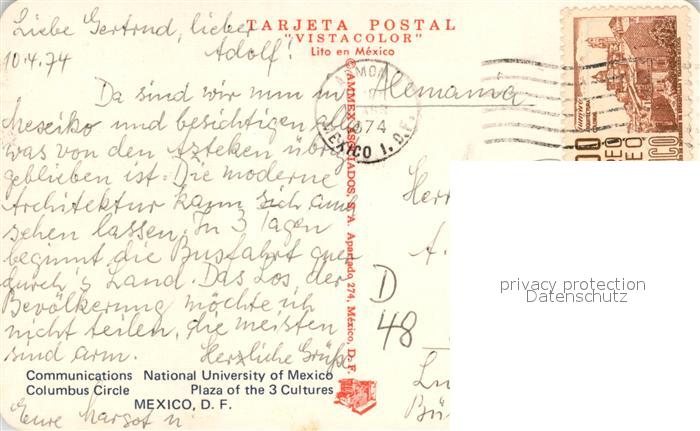 TARJETA POSTAL
"VISTACOLOR"
Lito en México
Liebe Gertrud, lieber
Adolf!
10.4.74
Da sind wir nun in
Mexiko und besichtigen alles
was von den Azteken übrig
geblieben ist. Die moderne
Architektur kann sich auch
sehen lassen. In 3 Tagen
beginnt die Busfahrt quer
durch's Land. Das Los der
Bevölkerung möchte ich
nicht teilen, die meisten
sind arm. Herzliche Grüße
Eure Margot u.
Communications National University of Mexico
Columbus Circle Plaza of the 3 Cultures
MEXICO, D. F.
© AMMEX ASOCIADOS, S. A. Apartado 274, México, D. F.
Alemania
1974
MEXICO 1, D.F.
MEXICO
Herr
A.
D
48
Lu
Bü
privacy protection
Datenschutz